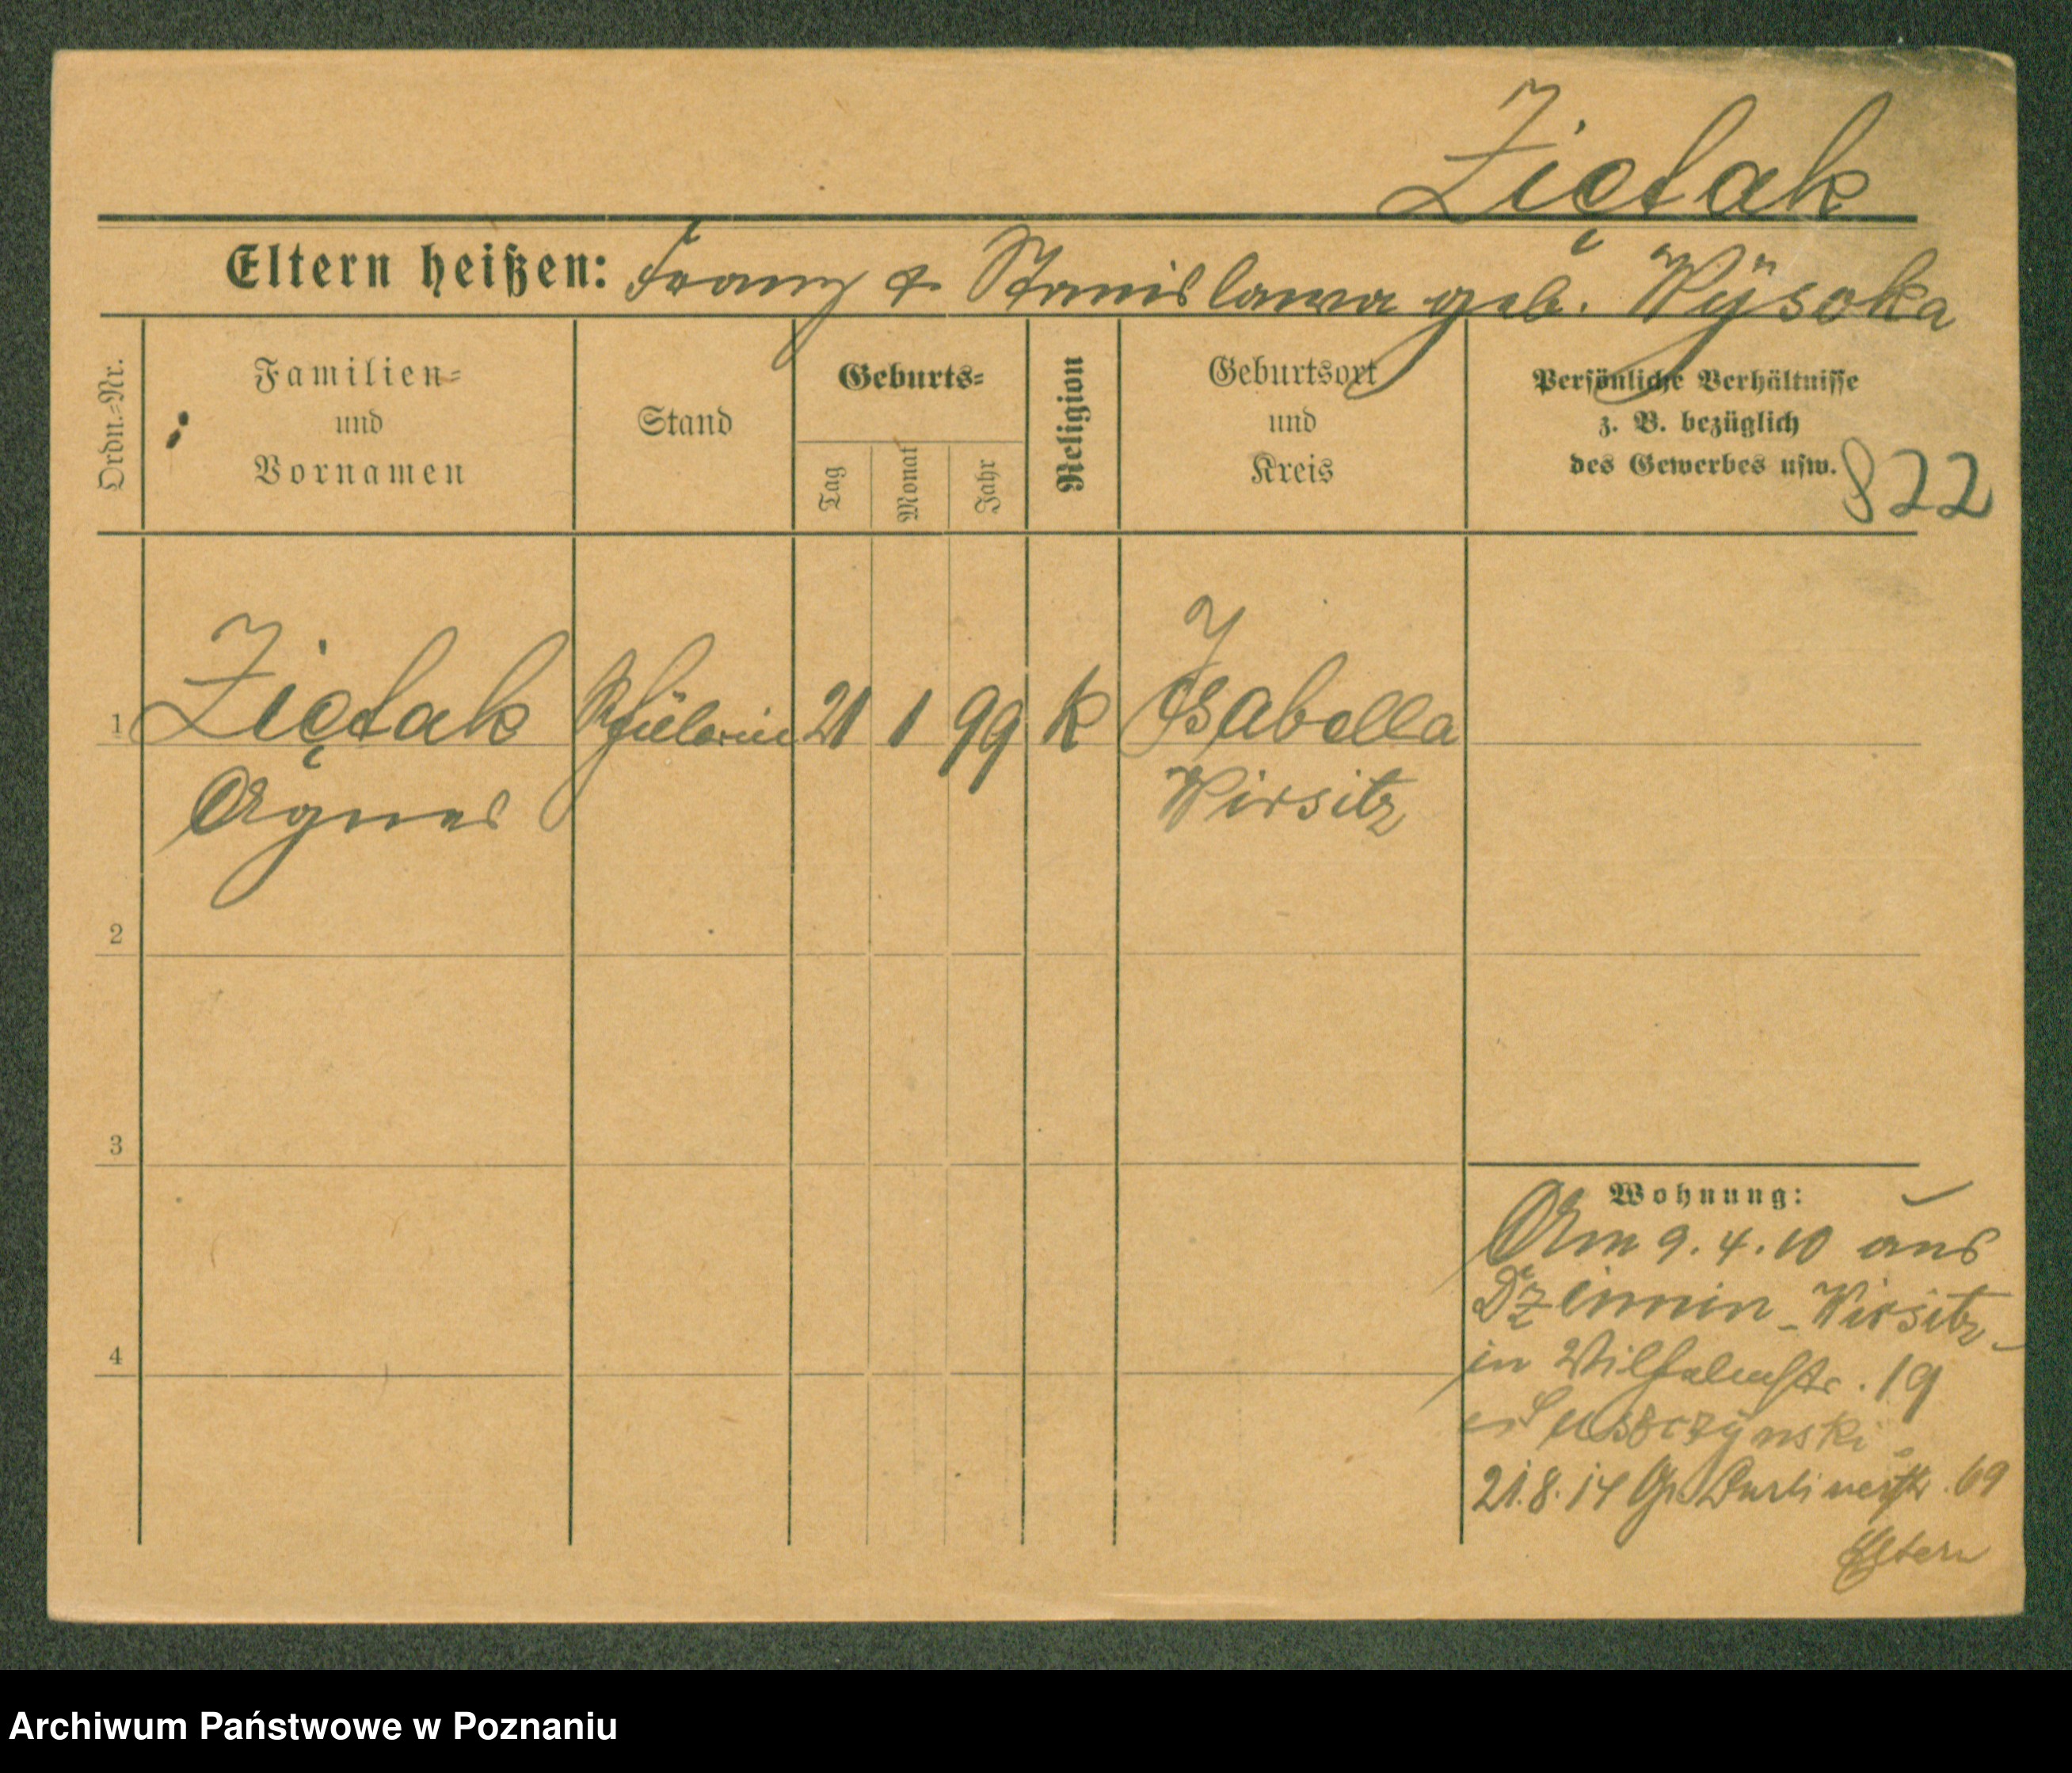 Ziętak
Eltern heißen: Franz & Stanislawa geb. Wÿsoka
Ordn.-Nr.
Familien-
und
Vornamen
Stand
Geburts-
Tag
Monat
Jahr
Religion
Geburtsort
und
Kreis
Persönliche Verhältnisse
z. B. bezüglich
des Gewerbes usw.
822
1 Ziętak Schülerin 21 1 99 k Isabella
Agnes Wirsitz
2
3
4
Wohnung:
Am 9.4.10 aus
Wirsitz
in Wilhelmstr. 19
21.8.14 Gr. Berlinerstr. 69
Eltern
Archiwum Państwowe w Poznaniu